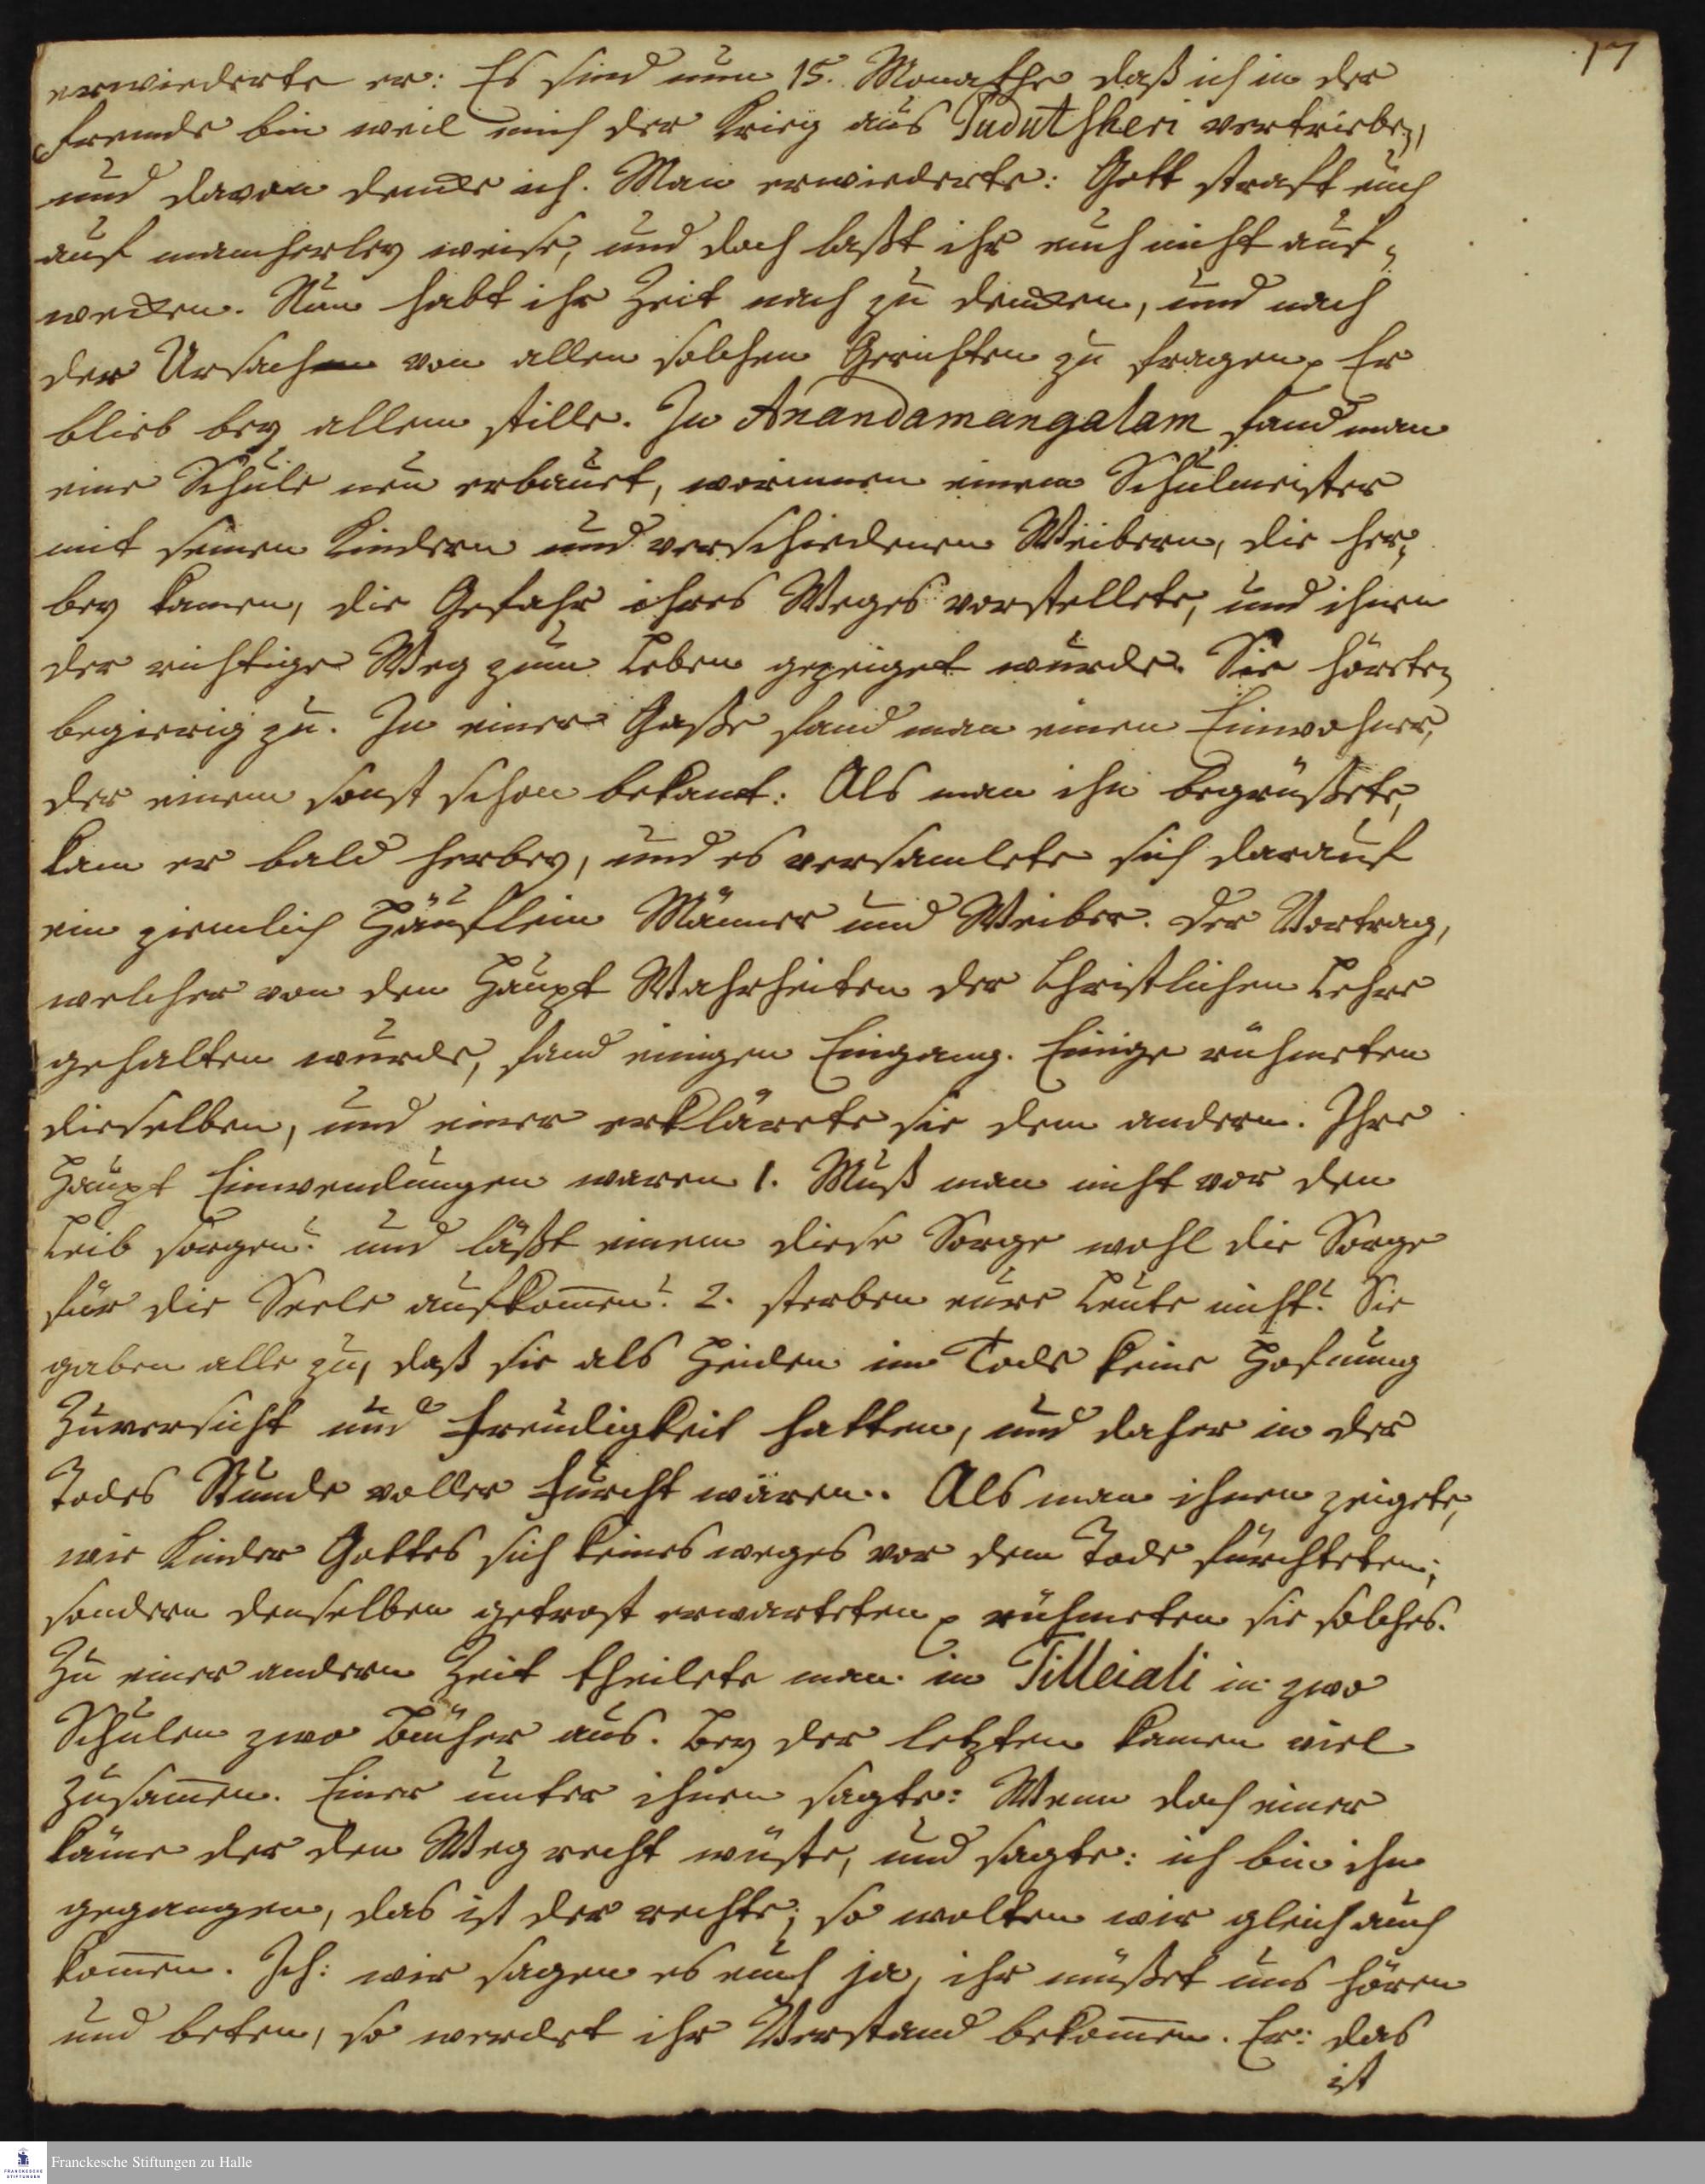 17
erwiederte er: Es sind nun 15. Monathe daß ich in der
Fremde bin weil mich der Krieg aus Pudutsheri vertrieben,
und davon dencke ich. Man erwiederte: Gott straft euch
auf mancherley weise, und doch laßt ihr euch nicht auf-
wecken. Nun habt ihr Zeit nach zu dencken, und nach
der Ursach von allen solchen Gerichten zu fragen. Er
blieb bey allem stille. In Anandamangalam fand man
eine Schule neu erbauet, worinnen einem Schulmeister
mit seinen Kindern und verschiedenen Weibern, die her-
bey kamen, die Gefahr ihres Weges vorstellete, und ihnen
der richtige Weg zum Leben gezeiget wurde. Sie höreten
begierig zu. In einer Gaße fand man einen Einwohner,
der einem sonst schon bekant: Als man ihn begrüßete,
kam er bald herbey, und es versamlete sich darauf
ein ziemlich Häuflein Männer und Weiber. Der Vortrag,
welcher von den Haupt Wahrheiten der Christlichen Lehre
gehalten wurde, fand einigen Eingang. Einige rühmeten
dieselben, und einer erklärete sie dem andern. Ihre
Haupt Einwendungen waren 1. Muß man nicht vor den
Leib sorgen? und läßt einem diese Sorge wohl die Sorge
für die Seele aufkom̄en? 2. sterben eure Leute nicht? Sie
gaben alle zu, daß sie als Heiden im Tode keine Hofnung
Zuversicht und Freudigkeit hatten, und daher in der
Todes Stunde voller Furcht wären. Als man ihnen zeigete,
wie Kinder Gottes sich keines weges vor dem Tode fürchteten,
sondern denselben getrost erwarteten, rühmeten sie solches.
Zu einer andern Zeit theilete man in Tilleiali in zwo
Schulen zwo Bücher aus. Bey der letzten kamen viel
zusam̄en. Einer unter ihnen sagte: Wenn doch einer
käme der den Weg recht wüste, und sagte: ich bin ihn
gegangen, das ist der rechte; so wolten wir gleich auch
kom̄en. Ich: wir sagen es euch ja, ihr müßet uns hören
und beten, so werdet ihr Verstand bekom̄en. Er: das
ist
FRANCKESCHE STIFTUNGEN
Franckesche Stiftungen zu Halle